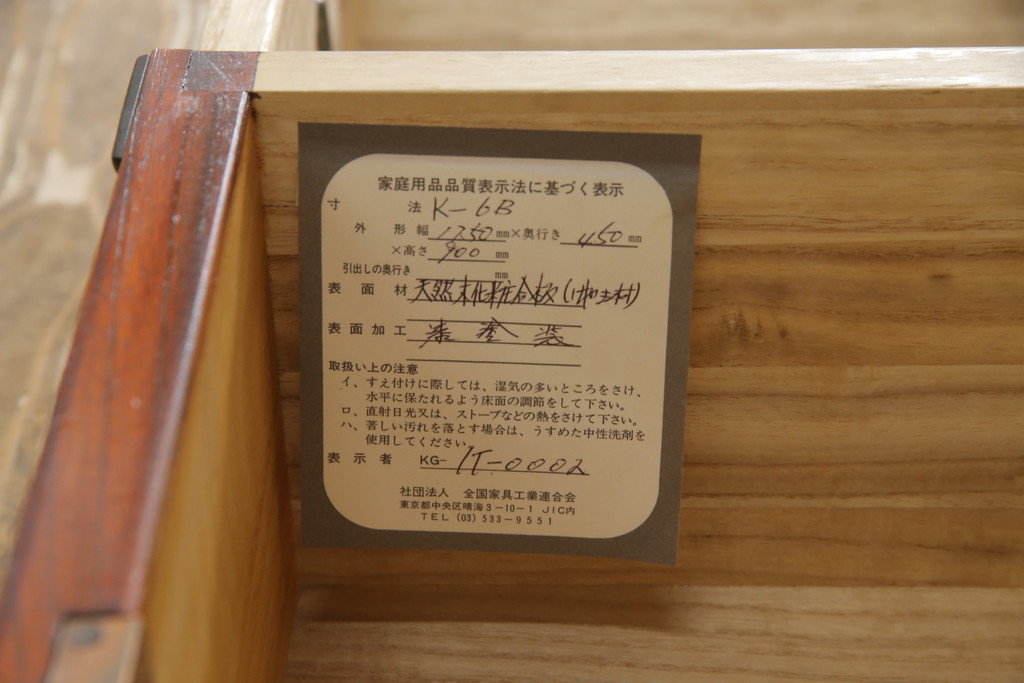 家庭用品品質表示法に基づく表示
寸 法 K-6B
外 形 幅 1250 mm×奥行き 450 mm
×高さ 900 mm
引出しの奥行き mm
表 面 材 天然木化粧合板
表面加工 漆塗装
取扱い上の注意
イ、すえ付けに際しては、湿気の多いところをさけ、
水平に保たれるよう床面の調節をして下さい。
ロ、直射日光又は、ストーブなどの熱をさけて下さい。
ハ、著しい汚れを落とす場合は、うすめた中性洗剤を
使用してください。
表 示 者 KG- IT-0002
社団法人 全国家具工業連合会
東京都中央区晴海3-10-1 JIC内
TEL (03) 533-9551